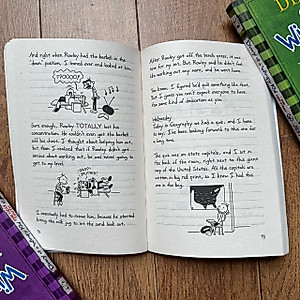 And right when Rowley had the barbell in the
"down" position, I leaned over and looked at him.
Sure enough, Rowley TOTALLY lost his
concentration. He couldn't even get the barbell
off his chest. I thought about helping him out,
but then I realized that if Rowley didn't get
serious about working out, he was never going to
get to my level.
I eventually had to rescue him, because he started
biting the milk jug to let the sand leak out.
After Rowley got off the bench press, it was
time for my set. But Rowley said he didn't feel
like working out any more, and he went home.
You know, I figured he'd pull something like that.
But I guess you can't expect everyone to have
the same kind of dedication as you.
Wednesday
Today in Geography we had a quiz, and I have
to say, I've been looking forward to this one for
a long time.
The quiz was on state capitals, and I sit in
the back of the room, right next to this giant
map of the United States. All the capitals are
written in big red print, so I knew I had this
one in the bag.